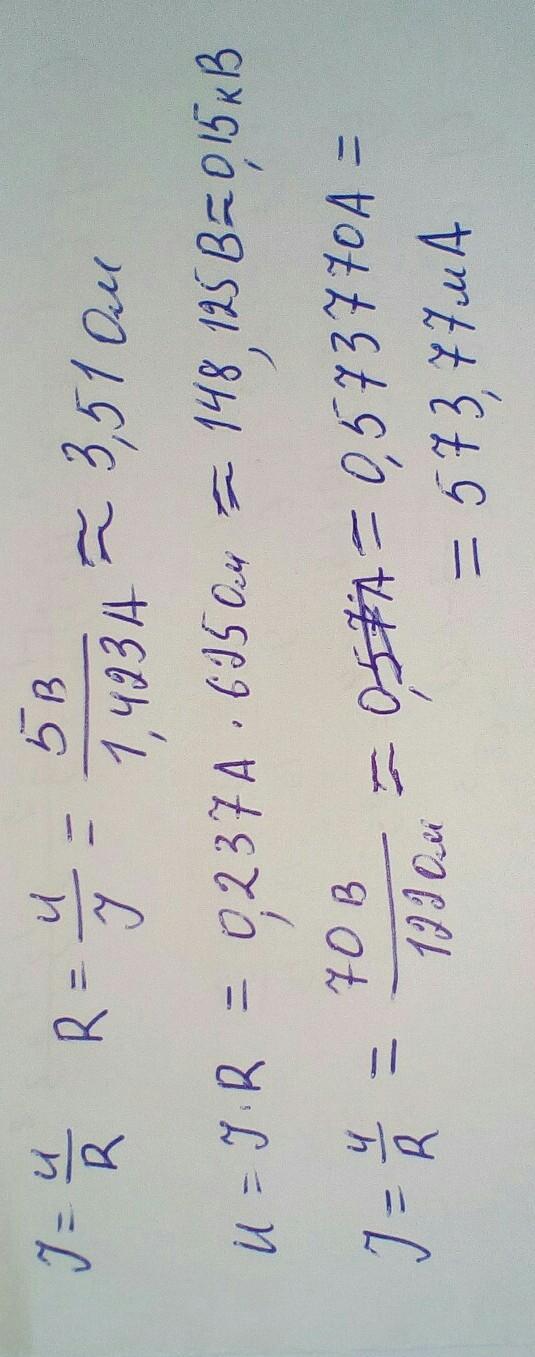 I = U/R R = U/I = 5В/1,423А ≈ 3,51 Ом
U = I·R = 0,237А · 625 Ом = 148,125В ≈ 0,15кВ
I = U/R = 70В/122Ом = 0,57А = 0,573770А =
= 573,77мА